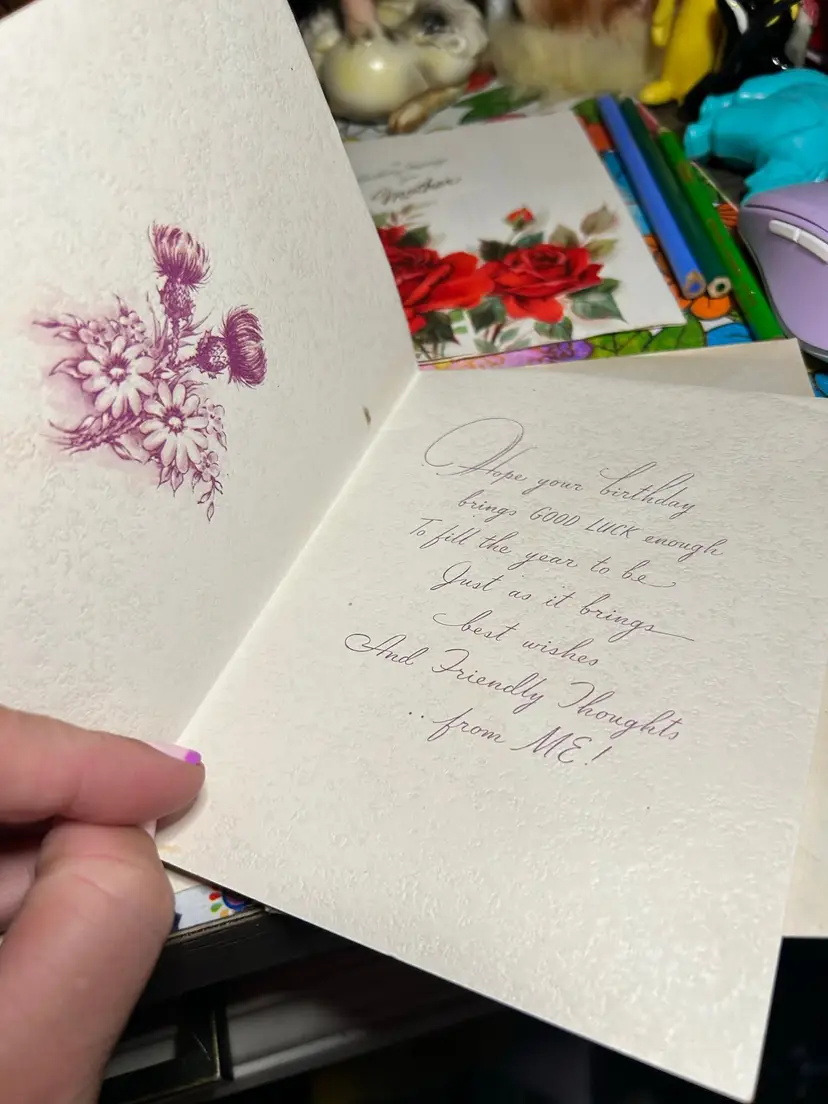 Mother
Hope your birthday
brings GOOD LUCK enough
To fill the year to be
Just as it brings
best wishes
And Friendly Thoughts
.. from ME!